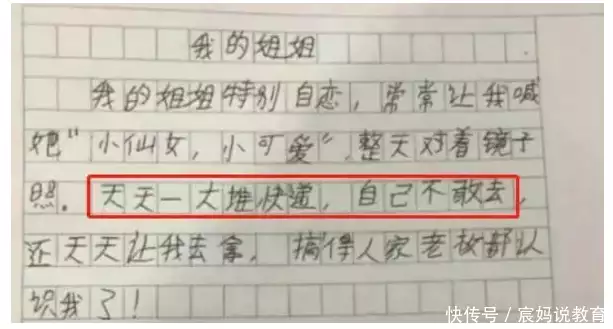 我的姐姐
我的姐姐特别自恋，常常让我喊
她“小仙女，小可爱”，整天对着镜子
照。天天一大堆快递，自己不敢去，
还天天让我去拿，搞得人家老板都认
识我了！
快传号／宸妈说教育